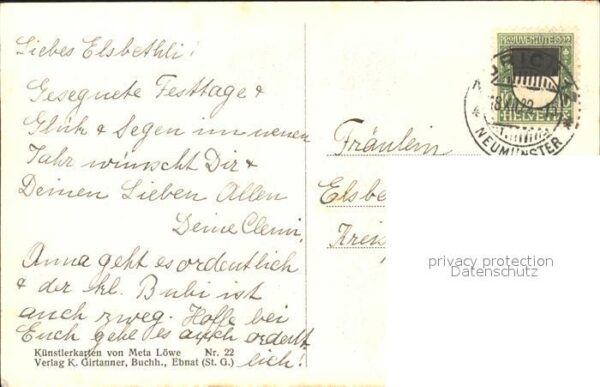 Liebes Elsbethli!
Gesegnete Festtage &
Glück & Segen im neuen
Jahr wünscht Dir &
Deinen Lieben Allen
Deine Clemi,
Anna geht es ordentlich
& der kl. Bubi ist
auch zweg. Hoffe bei
Euch gehe es auch ordent-
lich!
Künstlerkarten von Meta Löwe Nr. 22
Verlag K. Girtanner, Buchh., Ebnat (St. G.)
PRO JUVENTUTE 1922
10
HELVETIA
NEUMÜNSTER
Fräulein
Elsbe
Kreis
privacy protection
Datenschutz